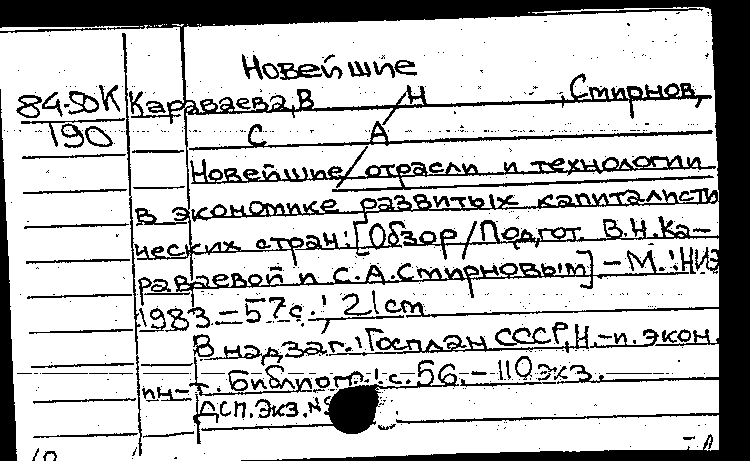 Новейшие
84-50К Караваева, В Н , Смирнов,
190 С А
Новейшие отрасли и технологии
в экономике развитых капиталисти
ческих стран: [Обзор / Подгот. В.Н. Ка-
раваевой и С.А. Смирновым] – М.: НИЭ
1983 – 57с.; 21cm
В надзаг.: Госплан СССР, Н.-и. экон.
ин-т. Библиогр.: с. 56. – 110 экз.
ДСП. Экз. №